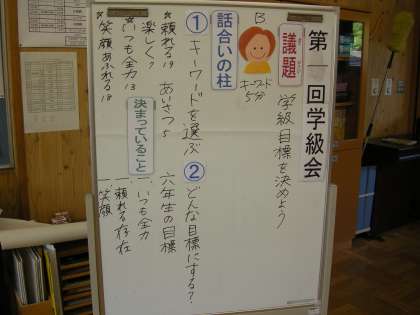 第一回学級会
議題
ぎだい
学級目標を決めよう
B
キーワード
5分
話合いの柱
① キーワードを選ぶ
② どんな目標にする?
*頼れる19
あいさつ5
楽しく7
*いつも全力13
*笑顔あふれる18
決まっていること
六年生の目標
・いつも全力
・頼れる存在
・笑顔